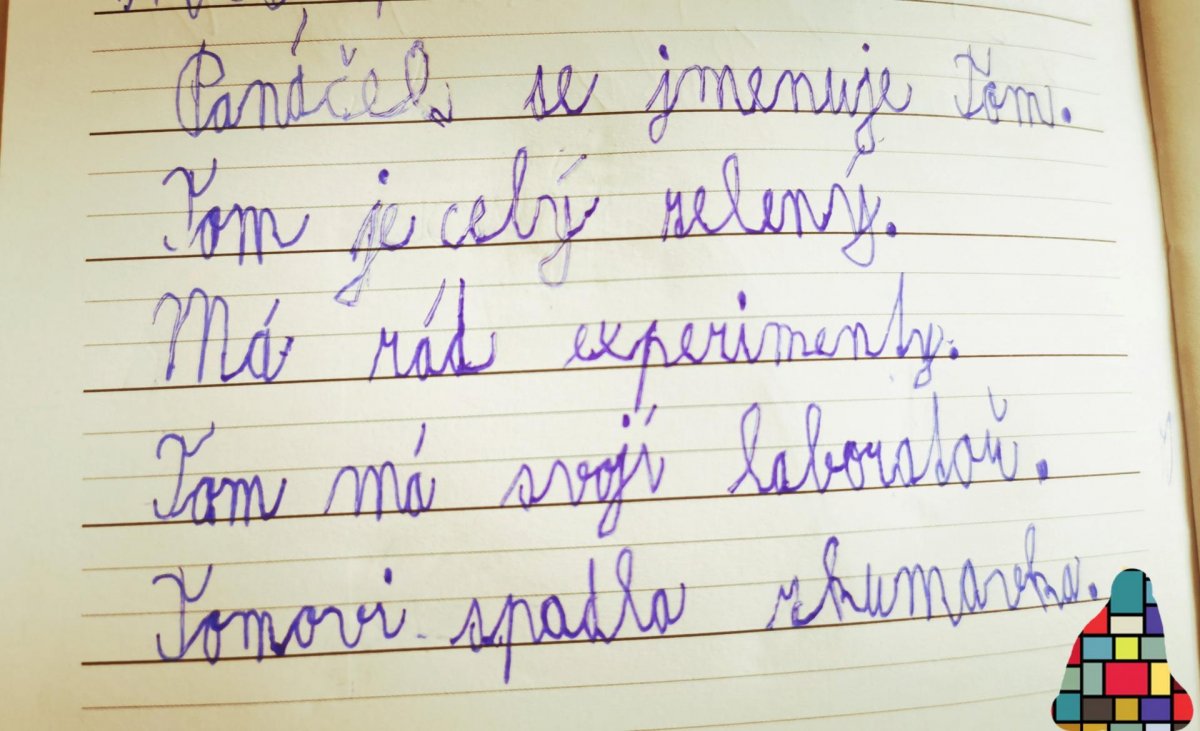 Panáček se jmenuje Tom.
Tom je celý zelený.
Má rád experimenty.
Tom má svojí laboratoř.
Tomovi spadla zkumavka.